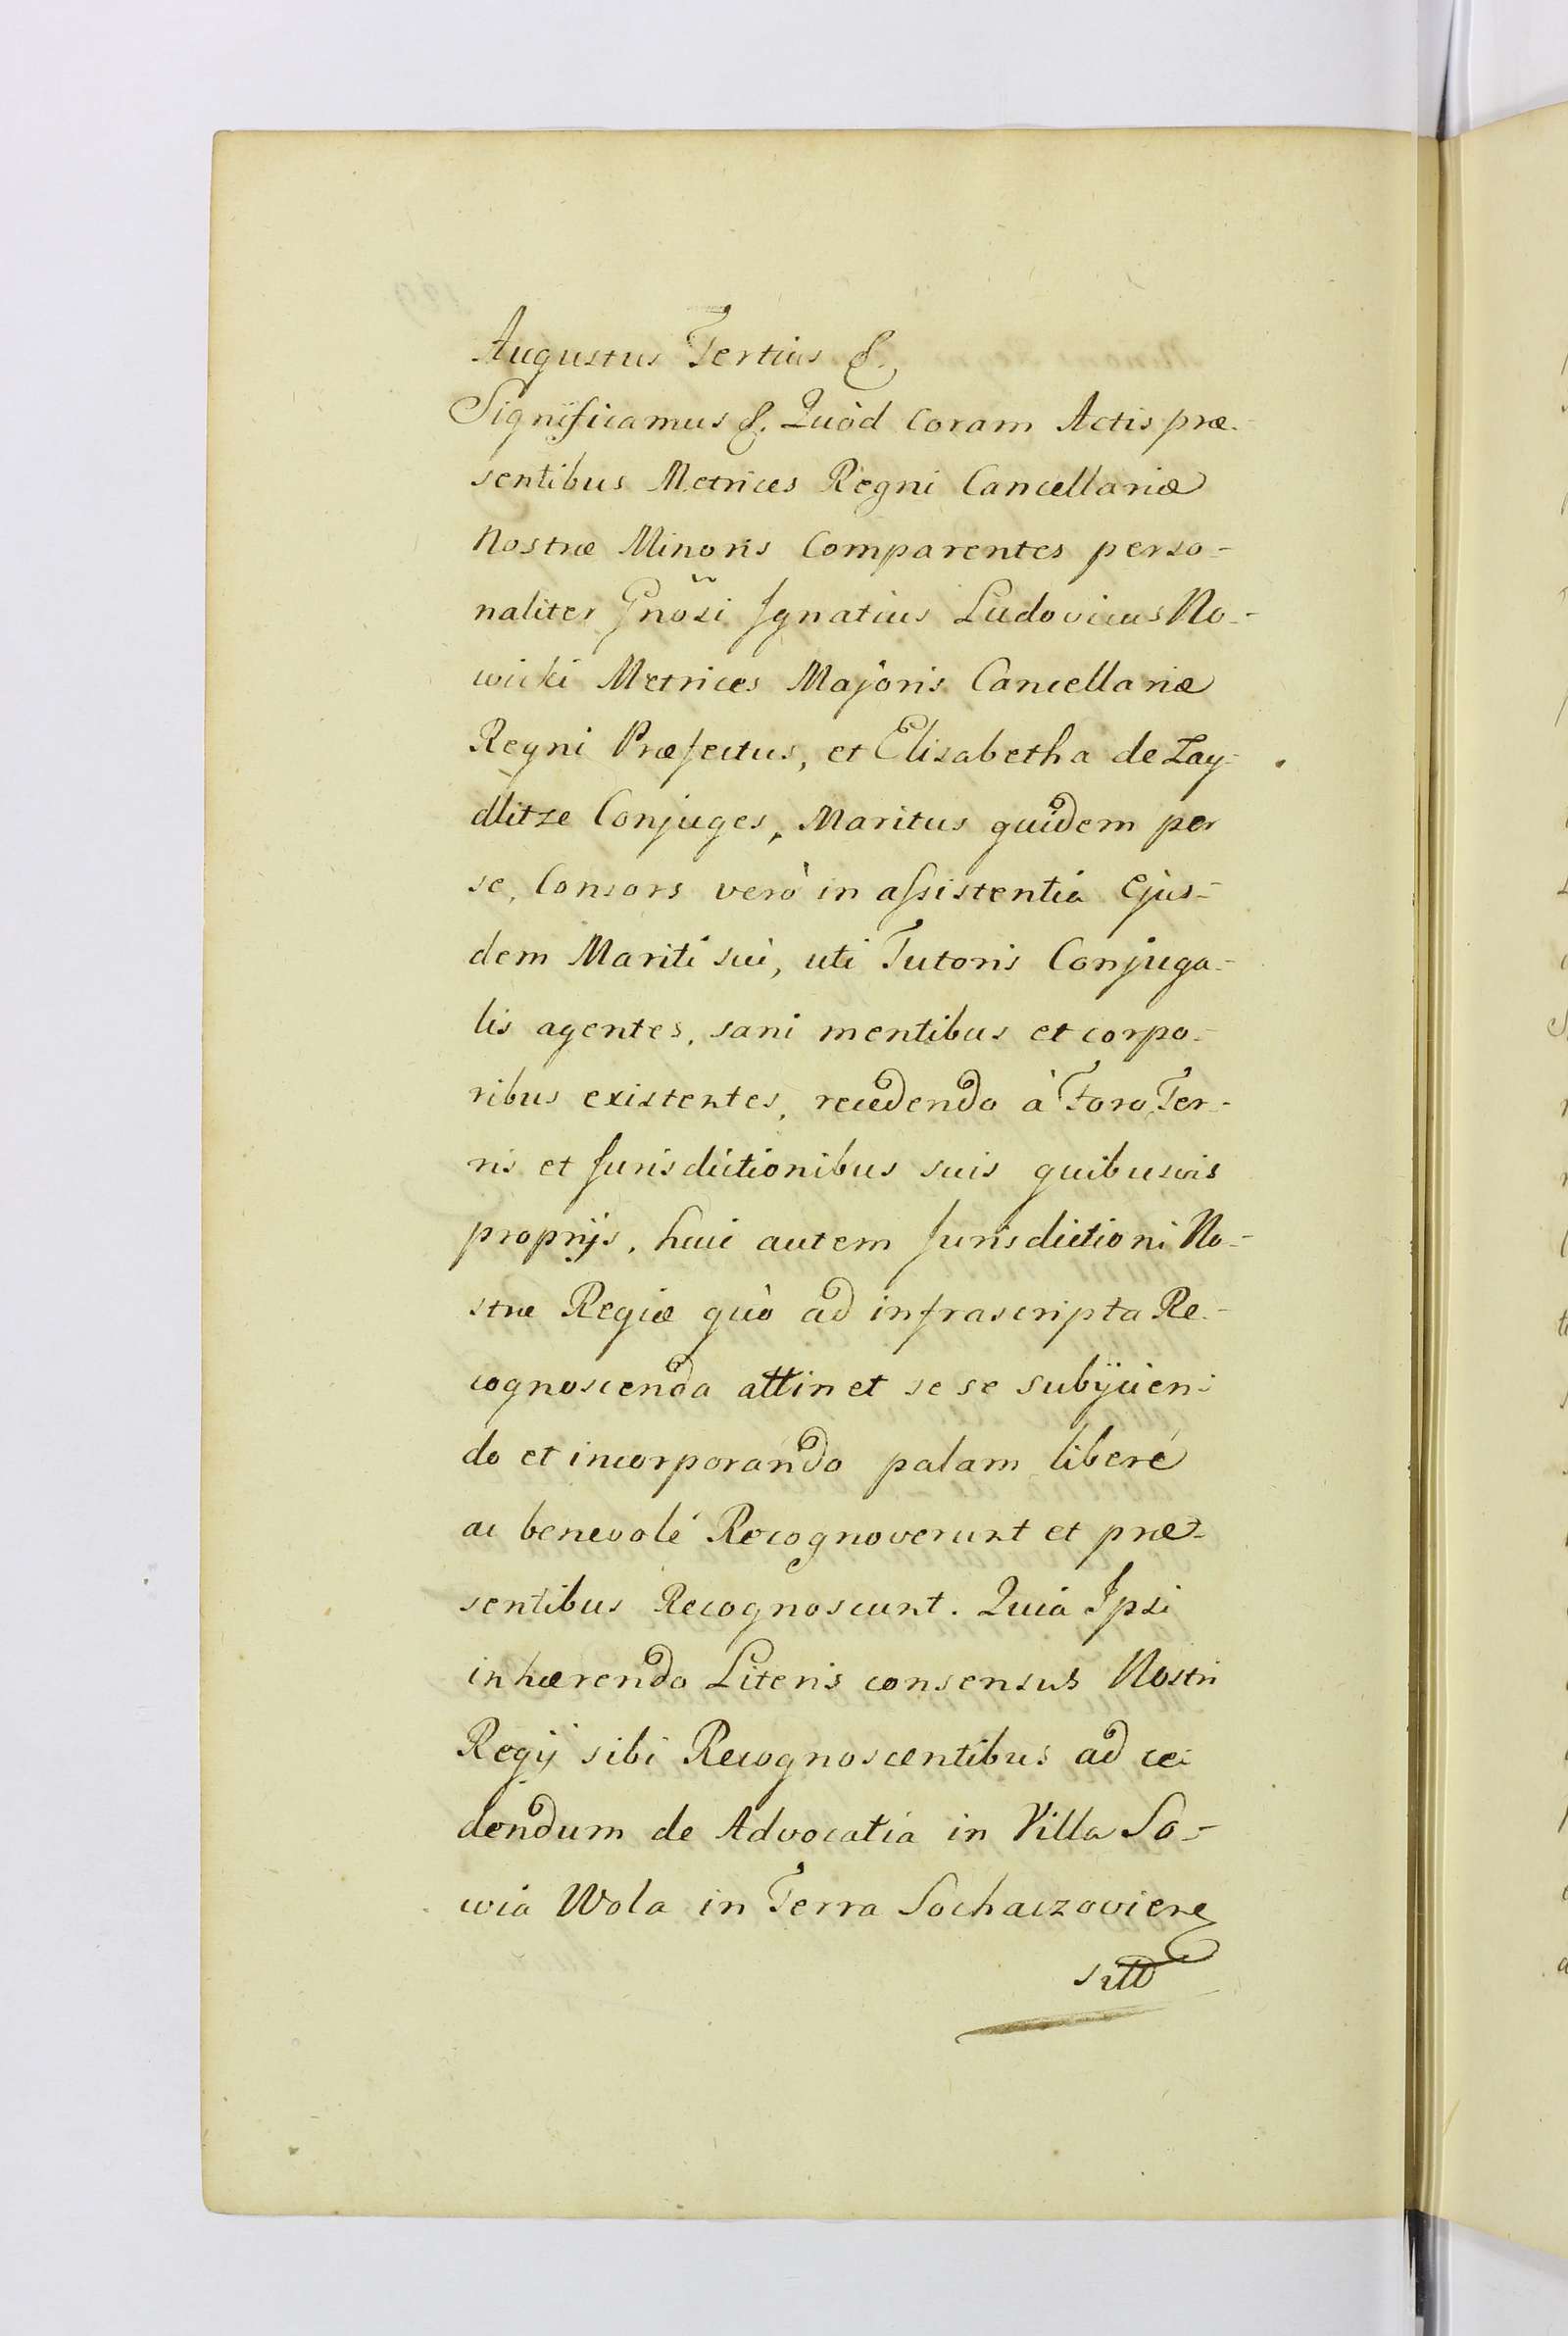 Augustus Tertius &.
Significamus &. Quòd Coram Actis præ-
sentibus Metrices Regni Cancellariæ
Nostræ Minoris Comparentes perso-
naliter Gnõsi Ignatius Ludovicus No-
wicki Metrices Majoris Cancellariæ
Regni Præfectus, et Elisabetha de Zay-
dlitze Conjuges, Maritus quidem per
se, Consors verò in assistentia Ejus-
dem Mariti sui, uti Tutoris Conjuga-
lis agentes, sani mentibus et corpo-
ribus existentes, recedendo à Foro, Ter-
ris et Jurisdictionibus suis quibusvis
proprijs, huic autem Jurisdictioni No-
stræ Regiæ quò ad infrascripta Re-
cognoscenda attinet se se subijcien-
do et incorporando palam liberè
ac benevolè Recognoverunt et præ-
sentibus Recognoscunt. Quia Ipsi
inhærendo Literis consensus Nostri
Regij sibi Recognoscentibus ad ce-
dendum de Advocatia in Villa So-
wia Wola in Terra Sochaczovien